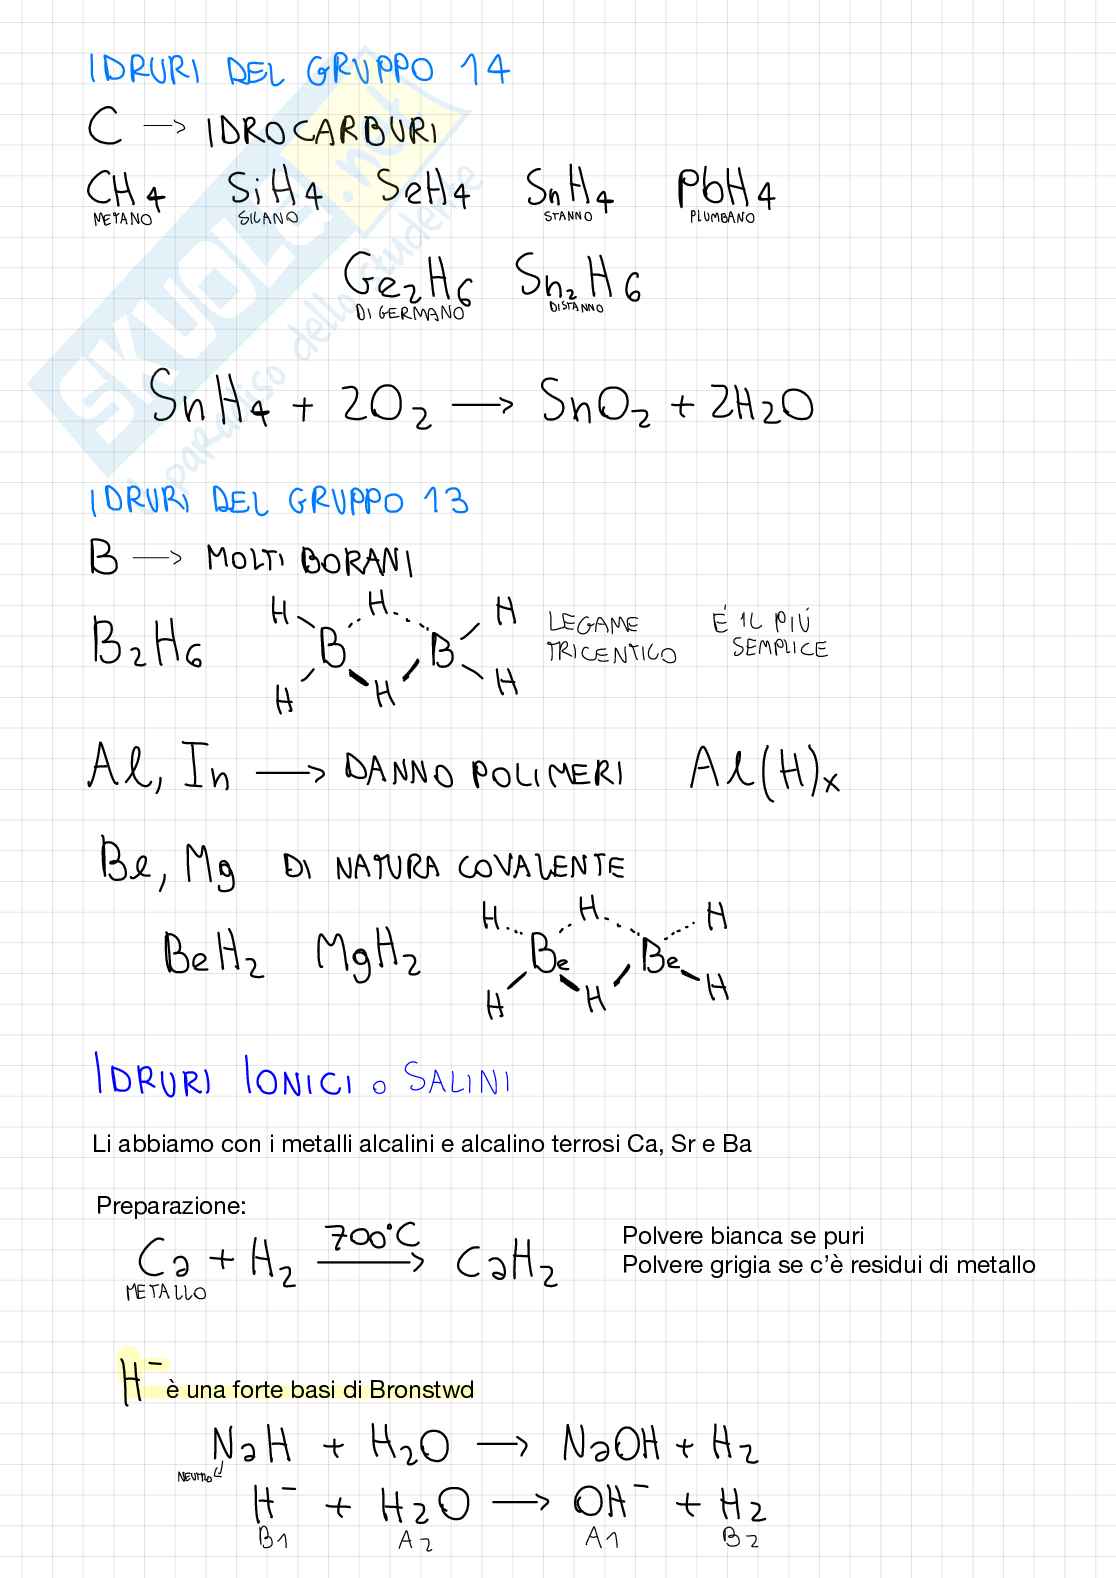 IDRURI DEL GRUPPO 14
C → IDROCARBURI
CH4 SiH4 SeH4 SnH4 PbH4
METANO SILANO STANNO PLUMBANO
Ge2H6 Sn2H6
DIGERMANO DISTANNO
SnH4 + 2O2 → SnO2 + 2H2O
IDRURI DEL GRUPPO 13
B → MOLTI BORANI
B2H6
H H H
B B
H H H
LEGAME TRICENTICO
É IL PIÚ SEMPLICE
Al, In → DANNO POLIMERI Al(H)x
Be, Mg DI NATURA COVALENTE
BeH2 MgH2
H H H
Be Be
H H H
IDRURI IONICI o SALINI
Li abbiamo con i metalli alcalini e alcalino terrosi Ca, Sr e Ba
Preparazione:
Ca + H2 700°C → CaH2
METALLO
Polvere bianca se puri
Polvere grigia se c'è residui di metallo
H⁻ è una forte basi di Bronstwd
NaH + H2O → NaOH + H2
NEUTRO
H⁻ + H2O → OH⁻ + H2
B1 A2 A1 B2
SKUOLA.net
il paradiso dello studente